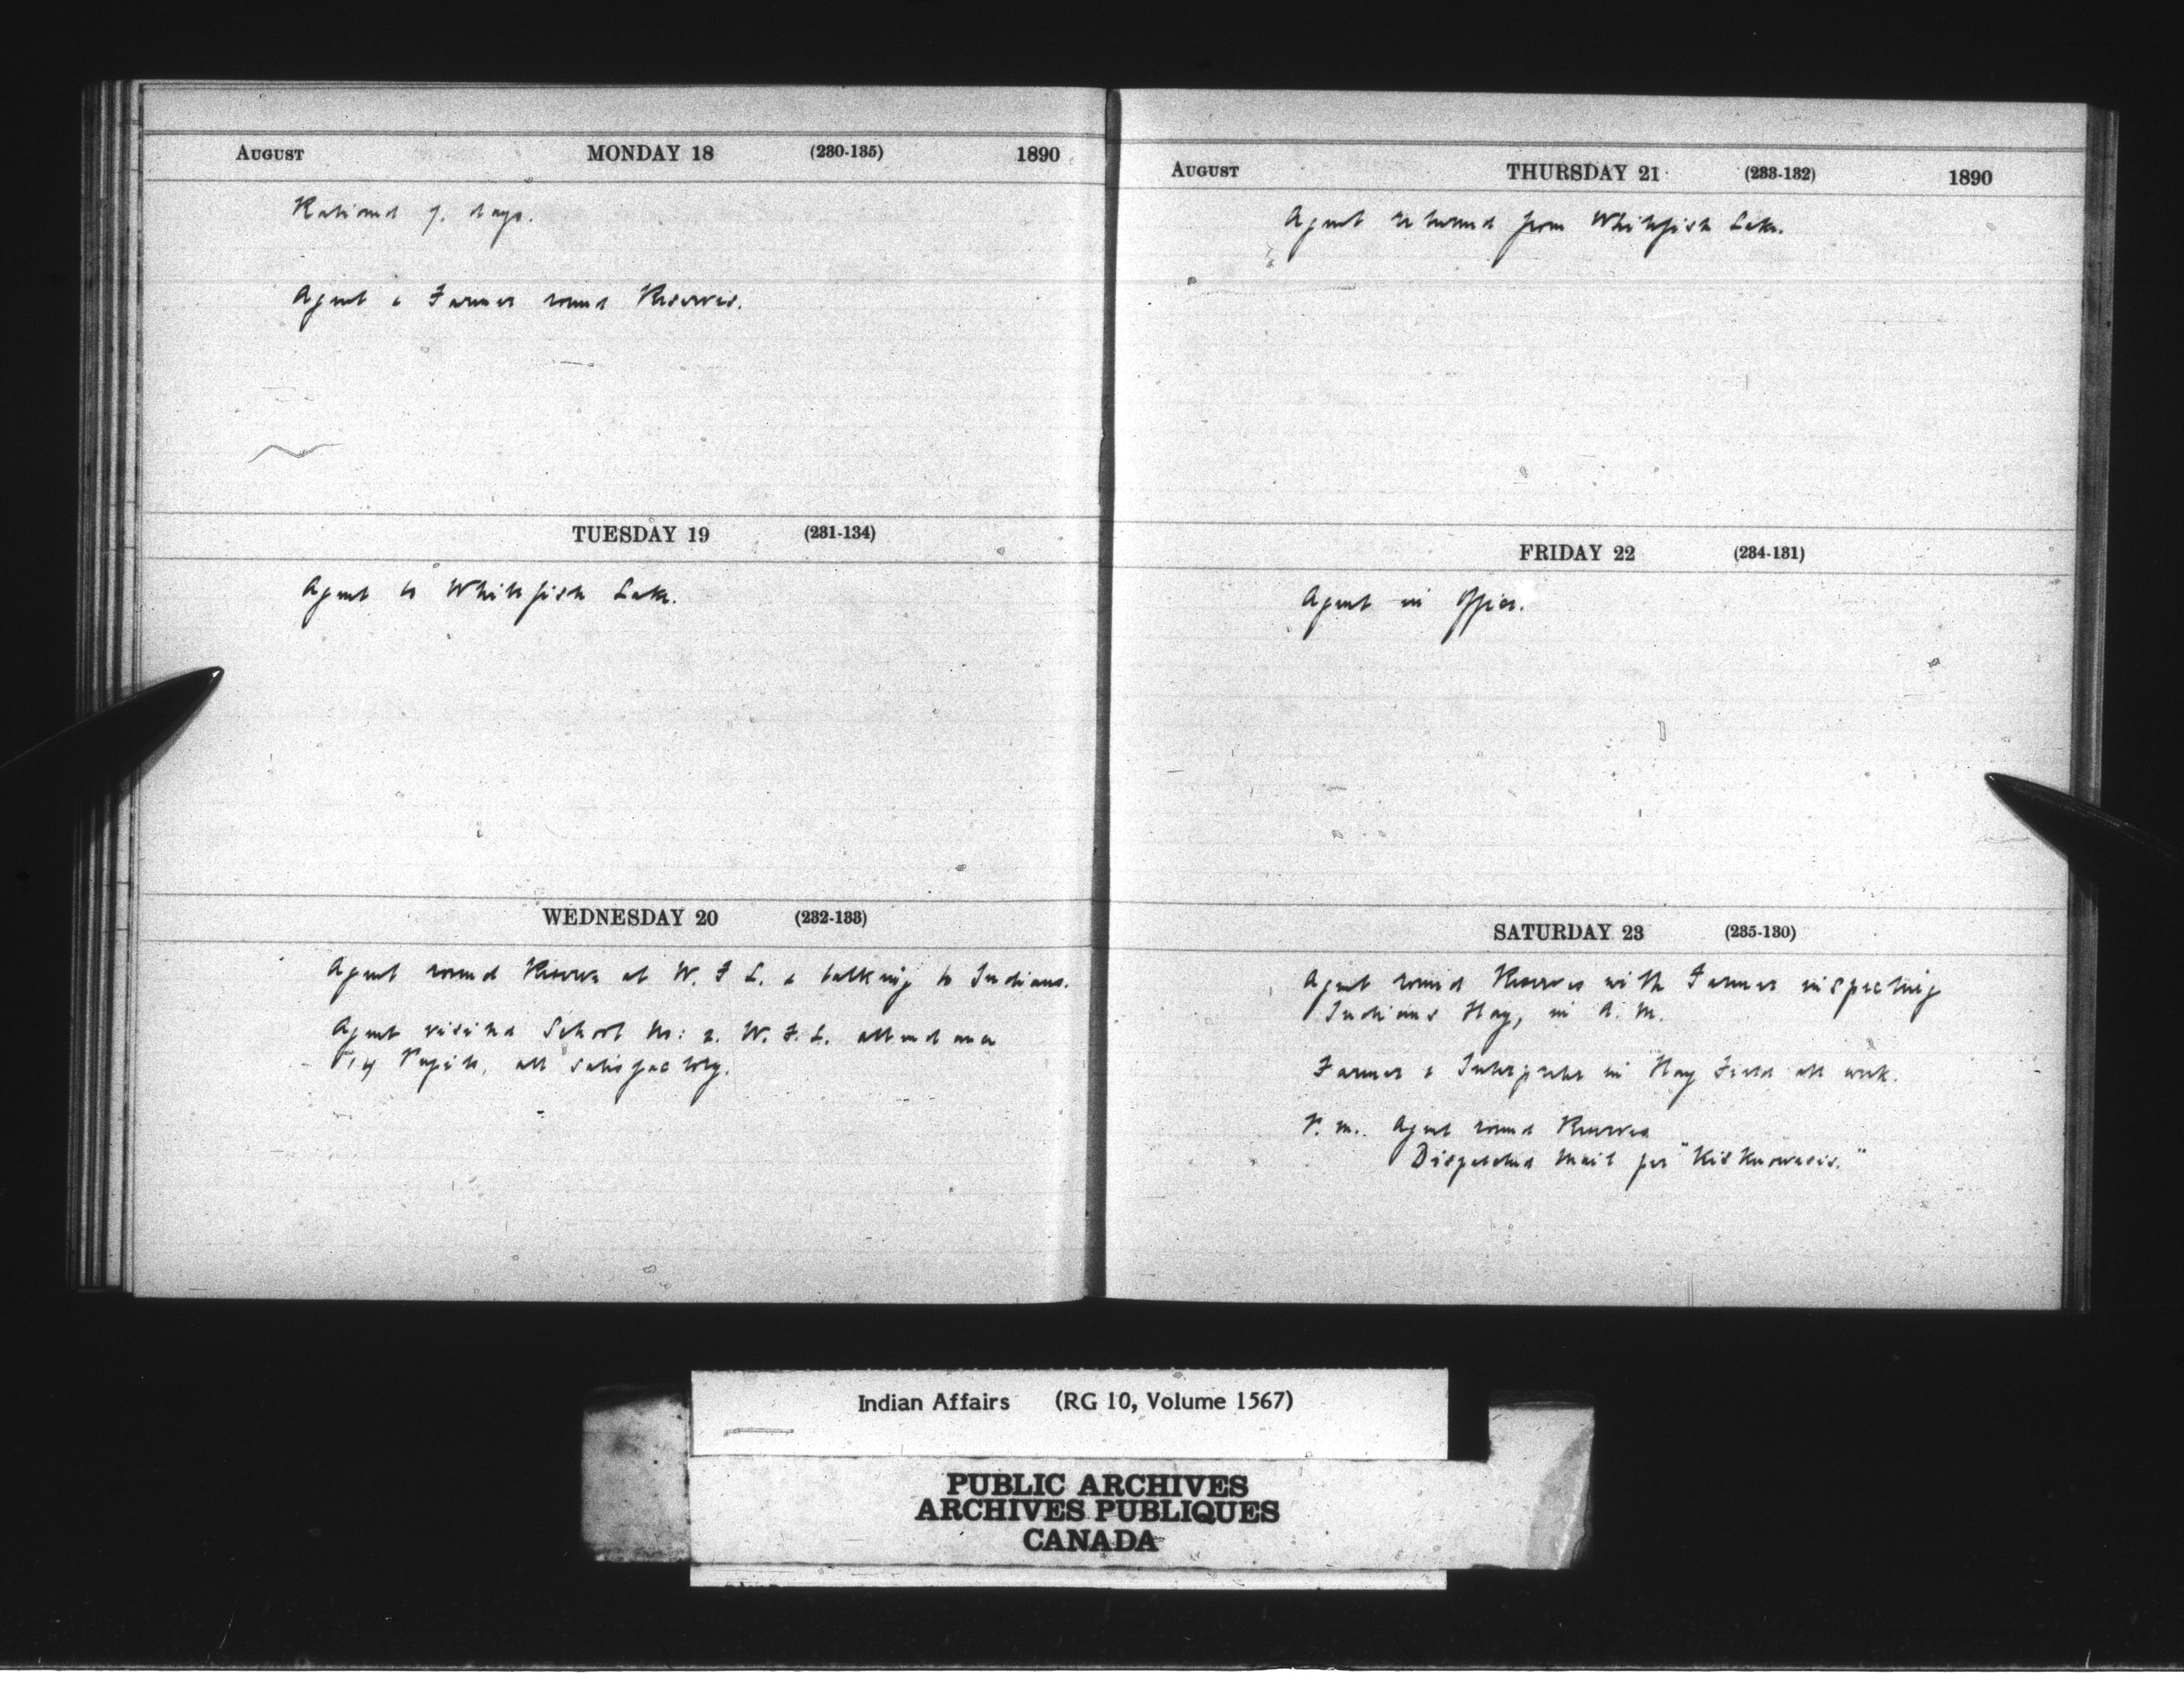 August MONDAY 18 (230-135) 1890
Rationed 7. days.
Agent & Farmer round Reserves.
TUESDAY 19 (231-134)
Agent to Whitefish Lake.
WEDNESDAY 20 (232-133)
Agent round Reserve at W. F. L. & talking to Indians.
Agent visited School No: 2. W. F. L. attendance
14 Pupils, all satisfactory.
August THURSDAY 21 (233-132) 1890
Agent returned from Whitefish Lake.
FRIDAY 22 (234-131)
Agent in Office.
SATURDAY 23 (235-130)
Agent round Reserves with Farmer inspecting
Indians Hay, in A. M.
Farmer & Interpreter in Hay Field all week.
P. M. Agent round Reserves
Dispatched Mail per
Indian Affairs (RG 10, Volume 1567)
PUBLIC ARCHIVES
ARCHIVES PUBLIQUES
CANADA